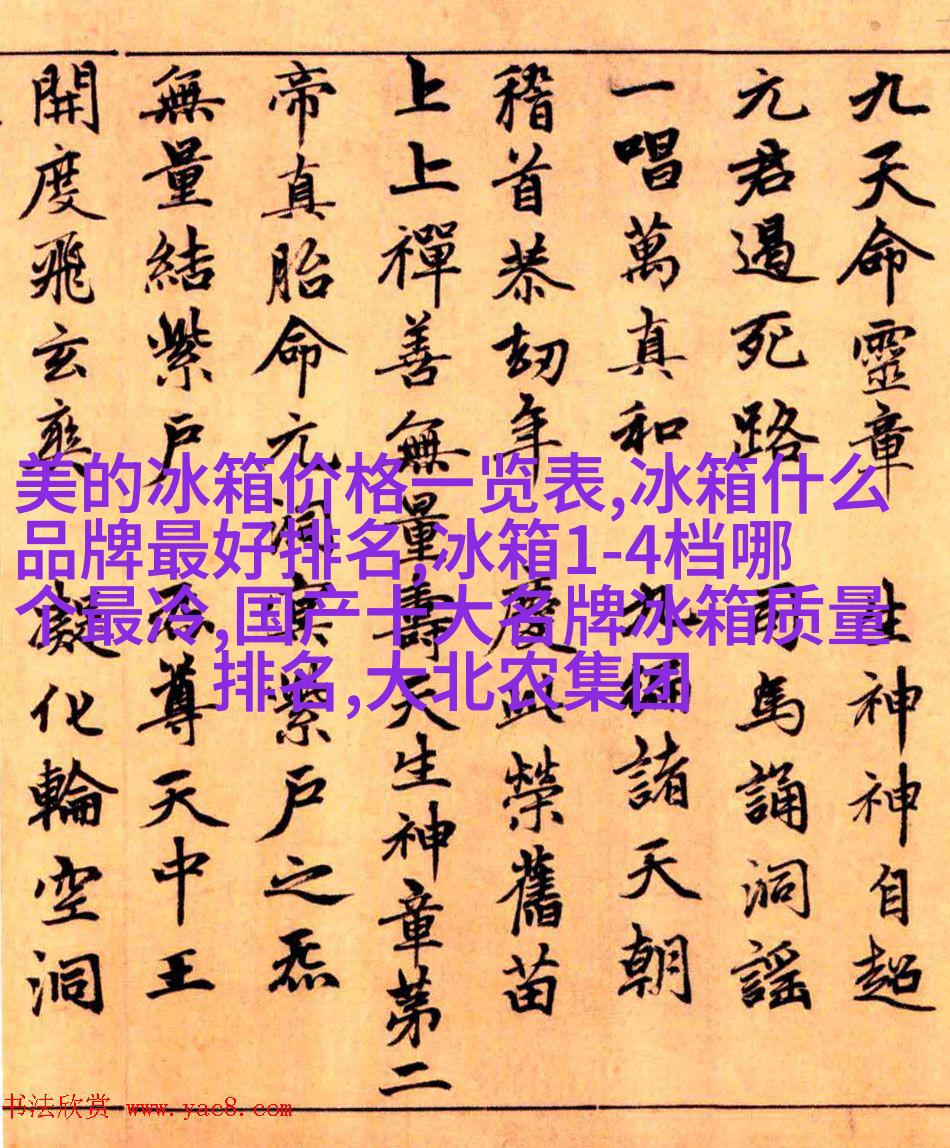 九天命靈章 生神神自超
元君遏死路 司馬誦洞謠
一唱萬真和 九遍諸天朝
稽首恭劫年 慶此榮舊苗
上上禪善無量壽天生神章第二
帝真胎命元洞冥紫戶之炁
無量結紫戶 炁尊天中王
開度飛玄爽 凝化輪空洞
美的冰箱价格一览表,冰箱什么
品牌最好排名,冰箱1-4档哪
个最冷,国产十大名牌冰箱质量
排名,大北农集团
书法欣赏 www.yac8.com